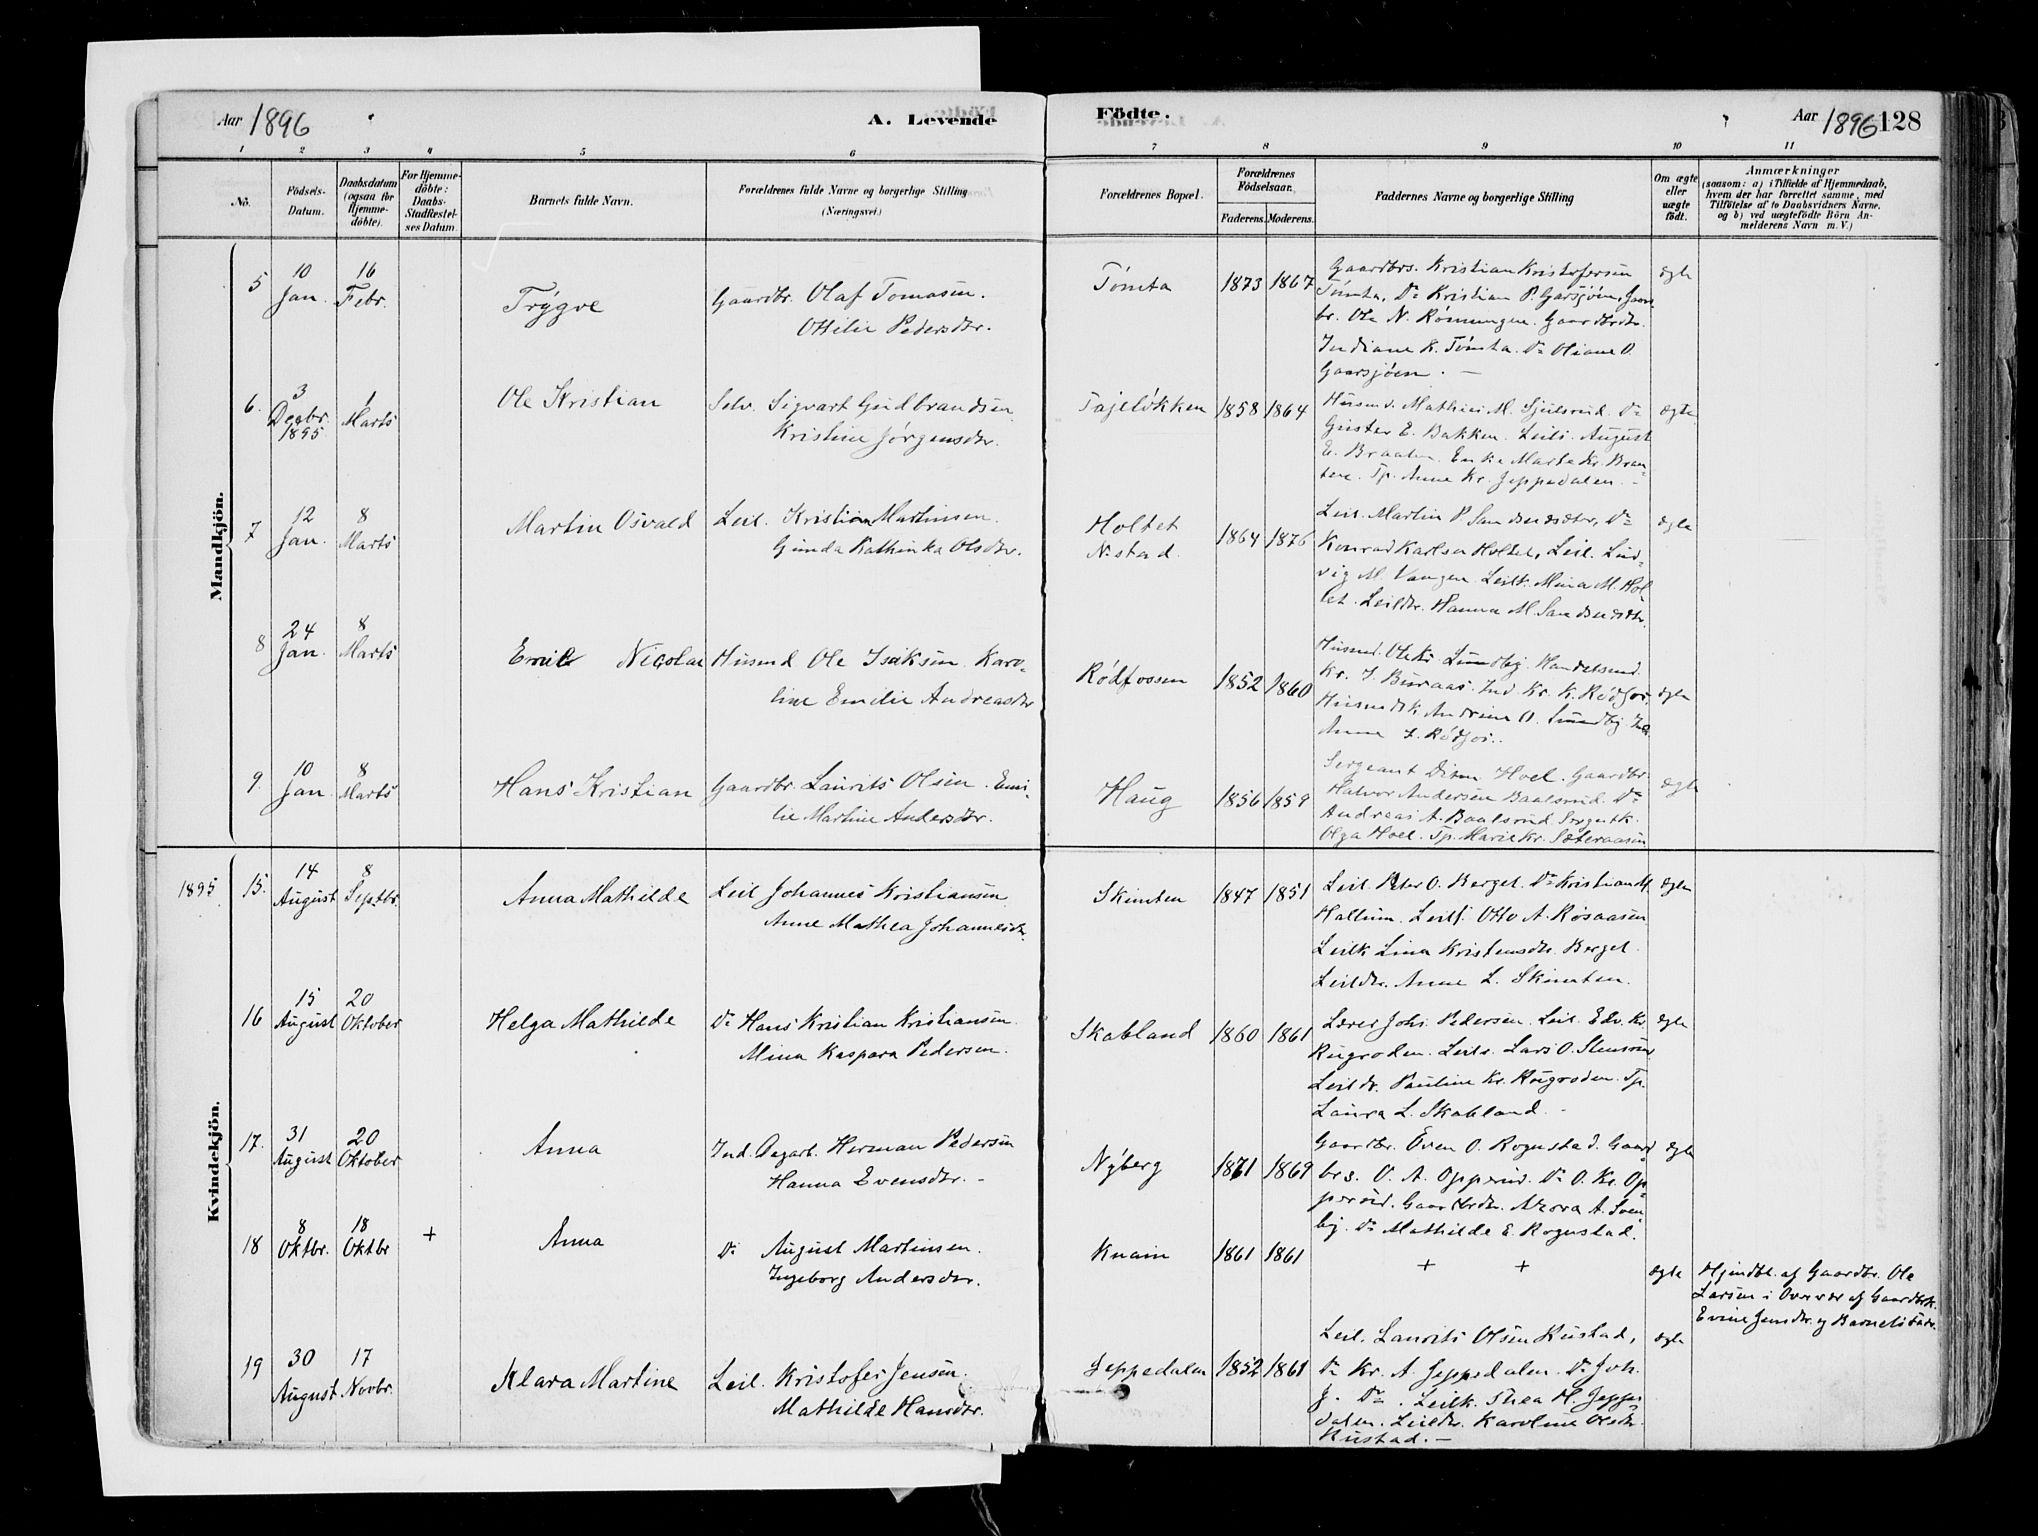 Aar 1896
A. Levende
Födte.
Aar 1896 128
1 2 3 4 5 6 7 8 9 10 11
No.
Födsels-
Datum.
Daabsdatum
(ogsaa for
Hjemme-
döbte).
For Hjemme-
döbte:
Daabs-
Stadfæstel-
ses Datum.
Barnets fulde Navn.
Forældrenes fulde Navne og borgerlige Stilling
(Næringsvei.)
Forældrenes Bopæl.
Forældrenes
Födselsaar.
Faderens. Moderens.
Faddernes Navne og borgerlige Stilling
Om ægte
eller
uægte
födt.
Anmærkninger
(saasom: a) i Tilfælde af Hjemmedaab,
hvem der har forrettet samme, med
Tilföielse af to Daabsvidners Navne,
og b) ved uægtefödte Börn An-
melderens Navn m. V.)
Mandkjön.
5 10 Jan. 16 Febr. Trygve
Gaardbr. Olaf Tomasen.
Ottilie Pedersdtr.
Tömta 1873 1867
Gaardbrs. Kristian Kristofersen
Tömta, Do Kristian P. Garsjöen, Gaard
br. Ole N. Rönningen. Gaardbrdtr.
Indiane K. Tömta. Do Oliane O.
Gaarsjöen. —
ægte
6. 3 Decbr. 1895 1 Marts Ole Kristian
Selv. Sigvart Gudbrandsen
Kristine Jörgensdtr.
Tajelökken 1858 1864
Husmd. Mathias M. Sjulsrud. Do
Gustav E. Bakken. Leils. August
E. Braaten. Enke Marte Kr. Braa-
ten. Tp. Anne Kr. Jeppedalen. -
ægte
7 12 Jan. 8 Marts Martin Osvald
Leil. Kristian Martinsen.
Gunda Kathinka Olsdtr.
Holtet
N.stad. 1864 1876
Leil. Martin P. Sandsnesæter, Do
Konrad Karlsen Holtet, Leil. Lud-
vig M. Vangen. Leilk. Mina M. Hol-
tet. Leildtr. Hanna M.
ægte
8 24 Jan. 8 Marts Emil Nicolai
Husmd Ole Isaksen. Karo-
line Emilie Andreasdtr
Rödfossen 1852 1860
Husmd. Ole Kr. Lundby. Handelsmd.
Kr. J. Buraas. Ind. Kr. K. Rödfos.
Husmdsk Andrine O. Lundby
Anne J. Rödfos.
ægte
9. 10 Jan. 8 Marts Hans Kristian
Gaardbr. Laurits Olsen. Emi-
lie Martine Andersdtr.
Haug 1856 1859
Sergeant Hoel. Gaardbr.
Halvor Andersen Baalsrud. Do
Andreas A. Baalsrud
Olga Hoel. Tp. Marie Kr. Sæteraasen
ægte
Kvindekjön.
1895 15. 14 August 8 Septbr. Anna Mathilde
Leil Johannes Kristiansen
Anne Mathea Johannesdtr.
Skimten 1847 1851
Leil. Peter O. Berget. Do Kristian M.
Hallum. Leilf. Otto A. Rösaasen
Leilk Lina Kristensdtr. Berget.
Leildtr. Anne L. Skimten.
ægte
16 15 August 20 Oktober Helga Mathilde
Do Hans Kristian Kristiansen.
Mina Kaspara Pedersen.
Skabland 1860 1861
Lærer Johs. Pedersen. Leil. Edv. Kr
Rugroden. Leils. Lars O. Stensrud
Leildtr. Pauline Kr. Rugroden. Tp.
Laura L. Skabland. -
ægte
17. 31 August 20 Oktober Anna
Ind. Dagarb. Herman Pedersen
Hanna Evensdtr. -
Nyberg 1871 1869
Gaardbr. Even O. Rognstad. Gaard
brs. O. A. Opperud. Do O. Kr. Op-
perud. Gaardbrdtr. A. Sven-
by. Do Mathilde E. Rognstad.
ægte
18 8 Oktbr. 18 Oktbr + Anna
Do August Martinsen.
Ingeborg Andersdtr.
Knain 1861 1861
+ +
ægte
Hjmdbt. af Gaardbr. Ole
Larsen i Overvær af Gaardbrk.
Evine Jensdtr. og Barnets Fader.
19 30 August 17 Novbr. Klara Martine
Leil. Kristofer Jensen.
Mathilde Hansdtr.
Jeppedalen 1852 1861
Leil. Laurits Olsen Rustad,
Do Kr. A. Jeppedalen. Do Joh.
J. Do. Leilk. Thea H. Jeppe-
dalen. Leildtr. Karoline Olsdtr.
Rustad. —
ægte